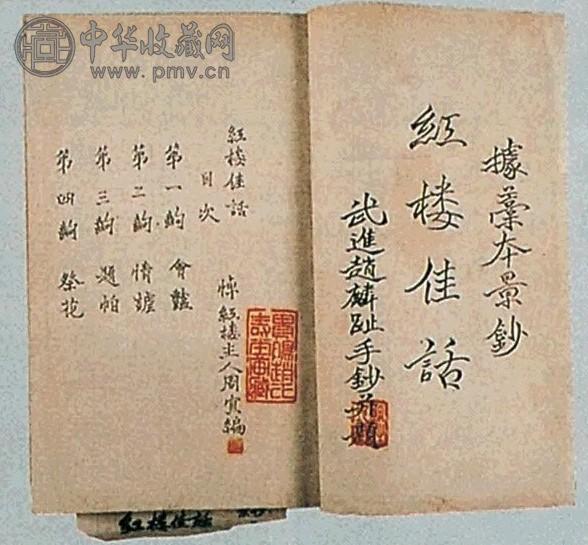 中华收藏网
www.pmv.cn
據藁本景鈔
紅楼佳話
武進趙麟趾手鈔并題
紅楼佳話
目次
悼紅楼主人周編
第一齣 會豔
第二齣 情
第三齣 題帕
第四齣 祭花
紅楼佳話